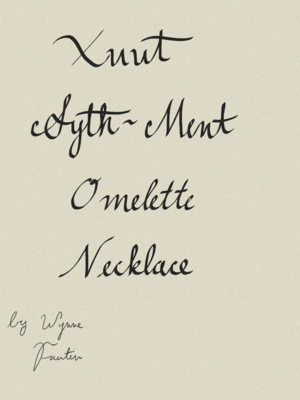 Xuut
Syth~Ment
Omelette
Necklace
by Wynne